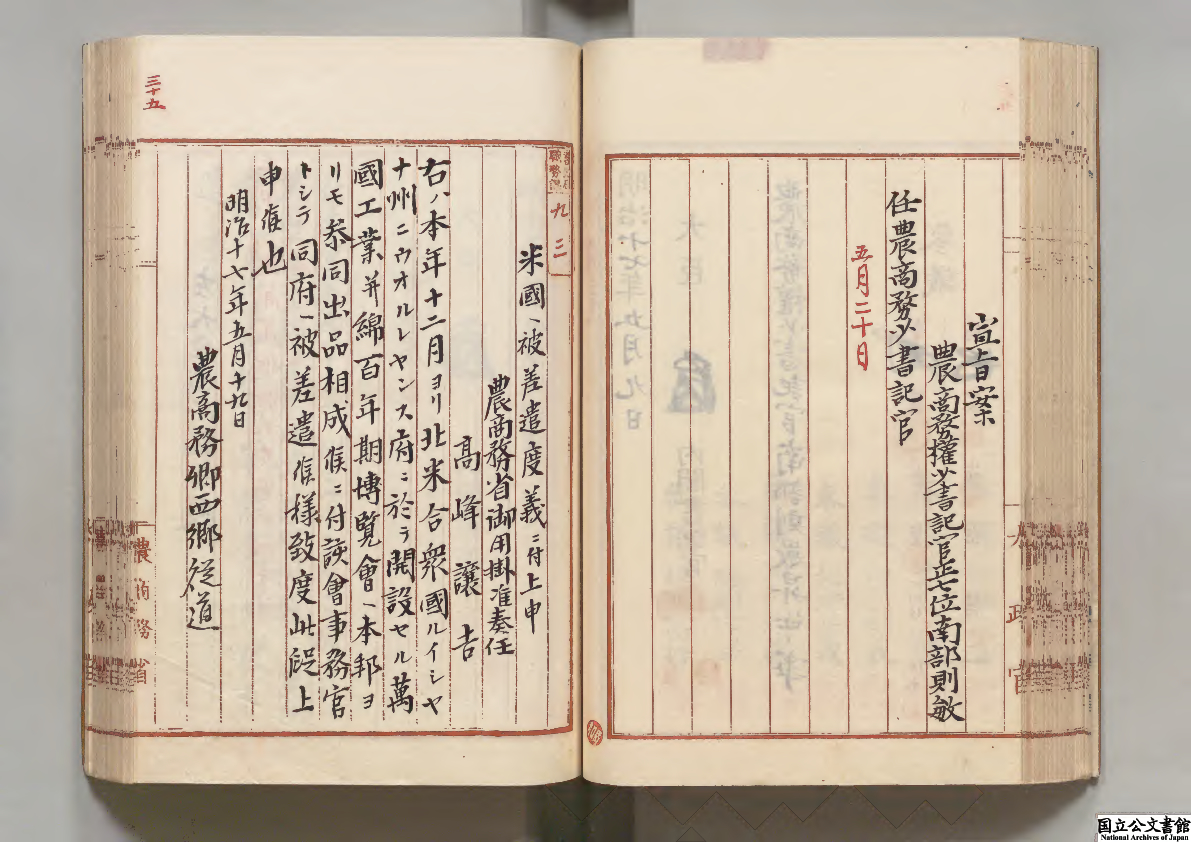 宣旨案
農商務權少書記官正七位南部則敏
任農商務少書記官
五月二十日
太政官
三十五
九三
米國ヘ被差遣度義ニ付上申
農商務省御用掛准奏任
高峰讓吉
右ハ本年十二月ヨリ北米合衆國ルイシヤ
ナ州ニウオルレヤンス府ニ於テ開設セル萬
國工業并綿百年期博覽會ヘ本邦ヨ
リモ叅同出品相成候ニ付該會事務官
トシテ同府ヘ被差遣候樣致度此段上
申候也
明治十七年五月十九日
農商務卿西鄉從道
農商務省
国立公文書館
National Archives of Japan